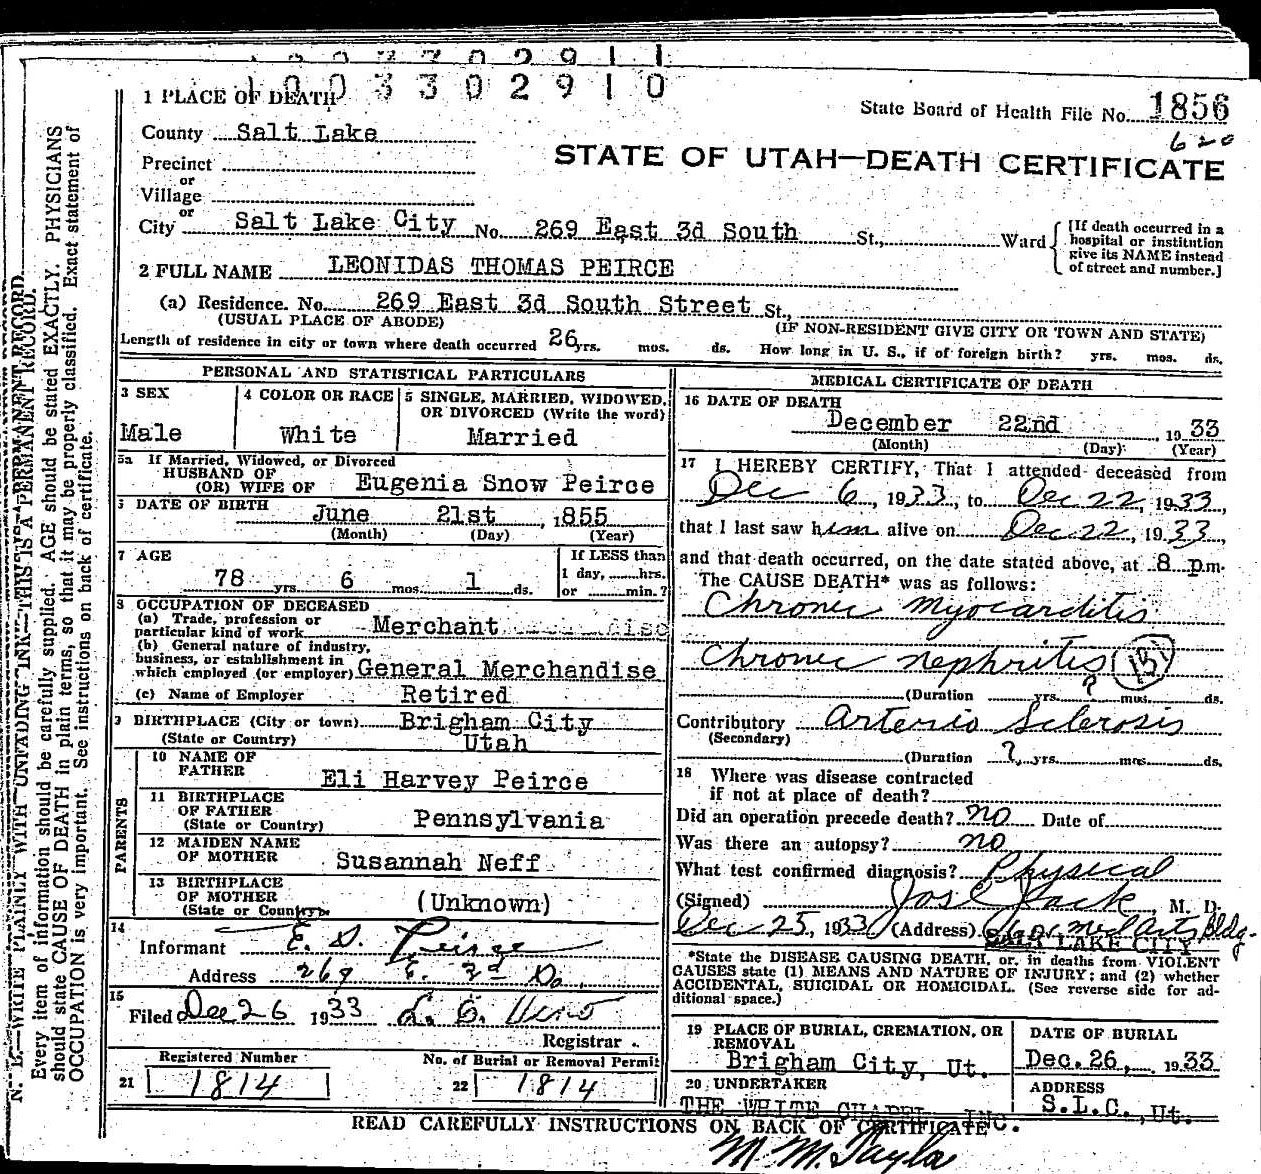 1003302911
1003302910
1 PLACE OF DEATH
State Board of Health File No. 1856
620
County Salt Lake
STATE OF UTAH—DEATH CERTIFICATE
Precinct
or
Village
or
City Salt Lake City No. 269 East 3d South St., Ward
[If death occurred in a
hospital or institution
give its NAME instead
of street and number.]
2 FULL NAME LEONIDAS THOMAS PEIRCE
(a) Residence. No. 269 East 3d South Street St.,
(USUAL PLACE OF ABODE) (IF NON-RESIDENT GIVE CITY OR TOWN AND STATE)
Length of residence in city or town where death occurred 26 yrs. mos. ds. How long in U. S., if of foreign birth? yrs. mos. ds.
PERSONAL AND STATISTICAL PARTICULARS
3 SEX
Male
4 COLOR OR RACE
White
5 SINGLE, MARRIED, WIDOWED,
OR DIVORCED (Write the word)
Married
5a If Married, Widowed, or Divorced
HUSBAND OF
(OR) WIFE OF Eugenia Snow Peirce
6 DATE OF BIRTH
June 21st, 1855
(Month) (Day) (Year)
7 AGE
78 yrs. 6 mos. 1 ds.
If LESS than
1 day, hrs.
or min.?
8 OCCUPATION OF DECEASED
(a) Trade, profession or
particular kind of work Merchant
(b) General nature of industry,
business, or establishment in
which employed (or employer) General Merchandise
(c) Name of Employer Retired
9 BIRTHPLACE (City or town) Brigham City
(State or Country) Utah
PARENTS
10 NAME OF
FATHER Eli Harvey Peirce
11 BIRTHPLACE
OF FATHER
(State or Country) Pennsylvania
12 MAIDEN NAME
OF MOTHER Susannah Neff
13 BIRTHPLACE
OF MOTHER
(State or Country) (Unknown)
14
Informant E. S. Peirce
Address 269 E. 3rd So.
15
Filed Dec 26 1933
Registrar
Registered Number
21 1814
No. of Burial or Removal Permit
22 1814
MEDICAL CERTIFICATE OF DEATH
16 DATE OF DEATH
December 22nd, 1933
(Month) (Day) (Year)
17 I HEREBY CERTIFY, That I attended deceased from
Dec 6, 1933, to Dec 22, 1933,
that I last saw him alive on Dec 22, 1933,
and that death occurred, on the date stated above, at 8 p.m.
The CAUSE DEATH* was as follows:
Chronic myocarditis
Chronic nephritis (131)
(Duration yrs. ? mos. ds.
Contributory Arterio Sclerosis
(Secondary)
(Duration ? yrs. mos. ds.
18 Where was disease contracted
if not at place of death?
Did an operation precede death? no Date of
Was there an autopsy? no
What test confirmed diagnosis? Physical
(Signed) Jos E Jack, M. D.
Dec 25, 1933 (Address) Med Arts Bldg.
SALT LAKE CITY
*State the DISEASE CAUSING DEATH, or, in deaths from VIOLENT
CAUSES state (1) MEANS AND NATURE OF INJURY; and (2) whether
ACCIDENTAL, SUICIDAL OR HOMICIDAL. (See reverse side for ad-
ditional space.)
19 PLACE OF BURIAL, CREMATION, OR
REMOVAL
Brigham City, Ut.
DATE OF BURIAL
Dec. 26, 1933
20 UNDERTAKER
THE WHITE CHAPEL INC.
ADDRESS
S.L.C., Ut.
READ CAREFULLY INSTRUCTIONS ON BACK OF CERTIFICATE.
N. B.—WRITE PLAINLY WITH UNFADING INK—THIS IS A PERMANENT RECORD.
Every item of information should be carefully supplied. AGE should be stated EXACTLY. PHYSICIANS
should state CAUSE OF DEATH in plain terms, so that it may be properly classified. Exact statement of
OCCUPATION is very important. See instructions on back of certificate.